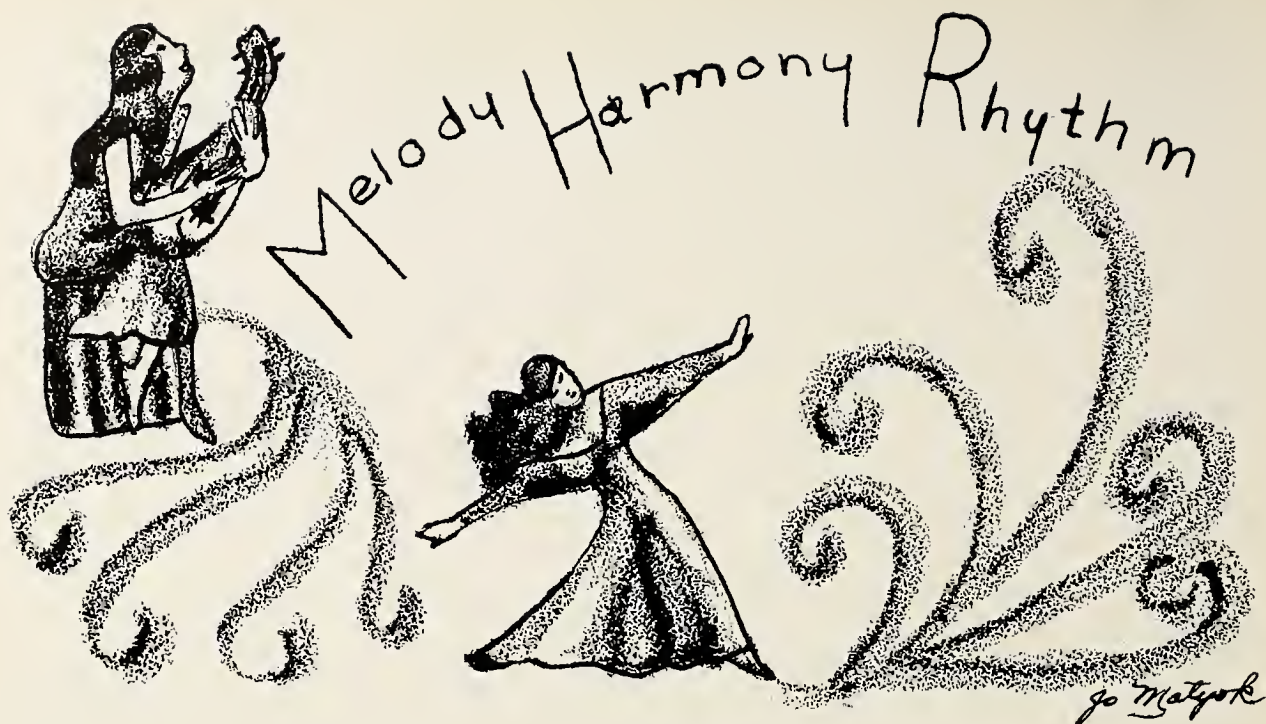 Melody Harmony Rhythm
Jo Matyok